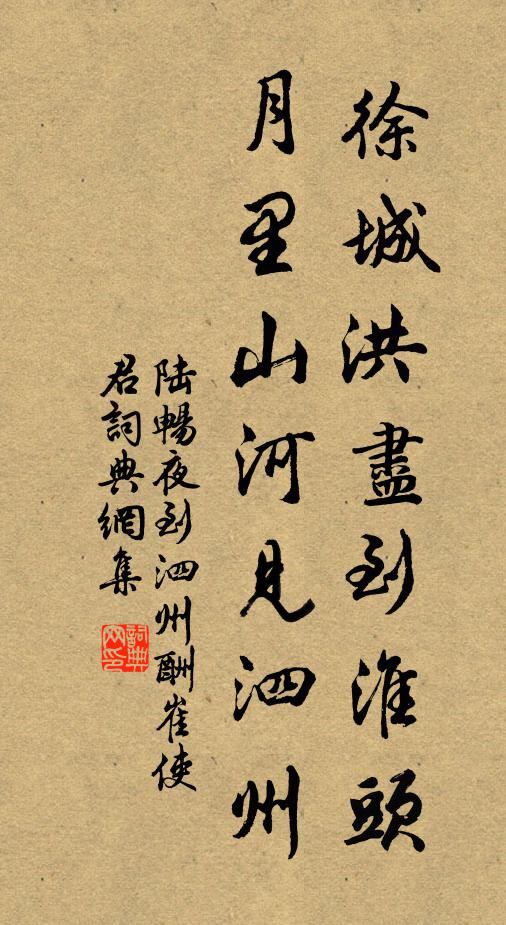 徐城洪盡到淮頭
月里山河見泗州
陸暢夜到泗州酬崔使
君詞典網集
詞典
网印